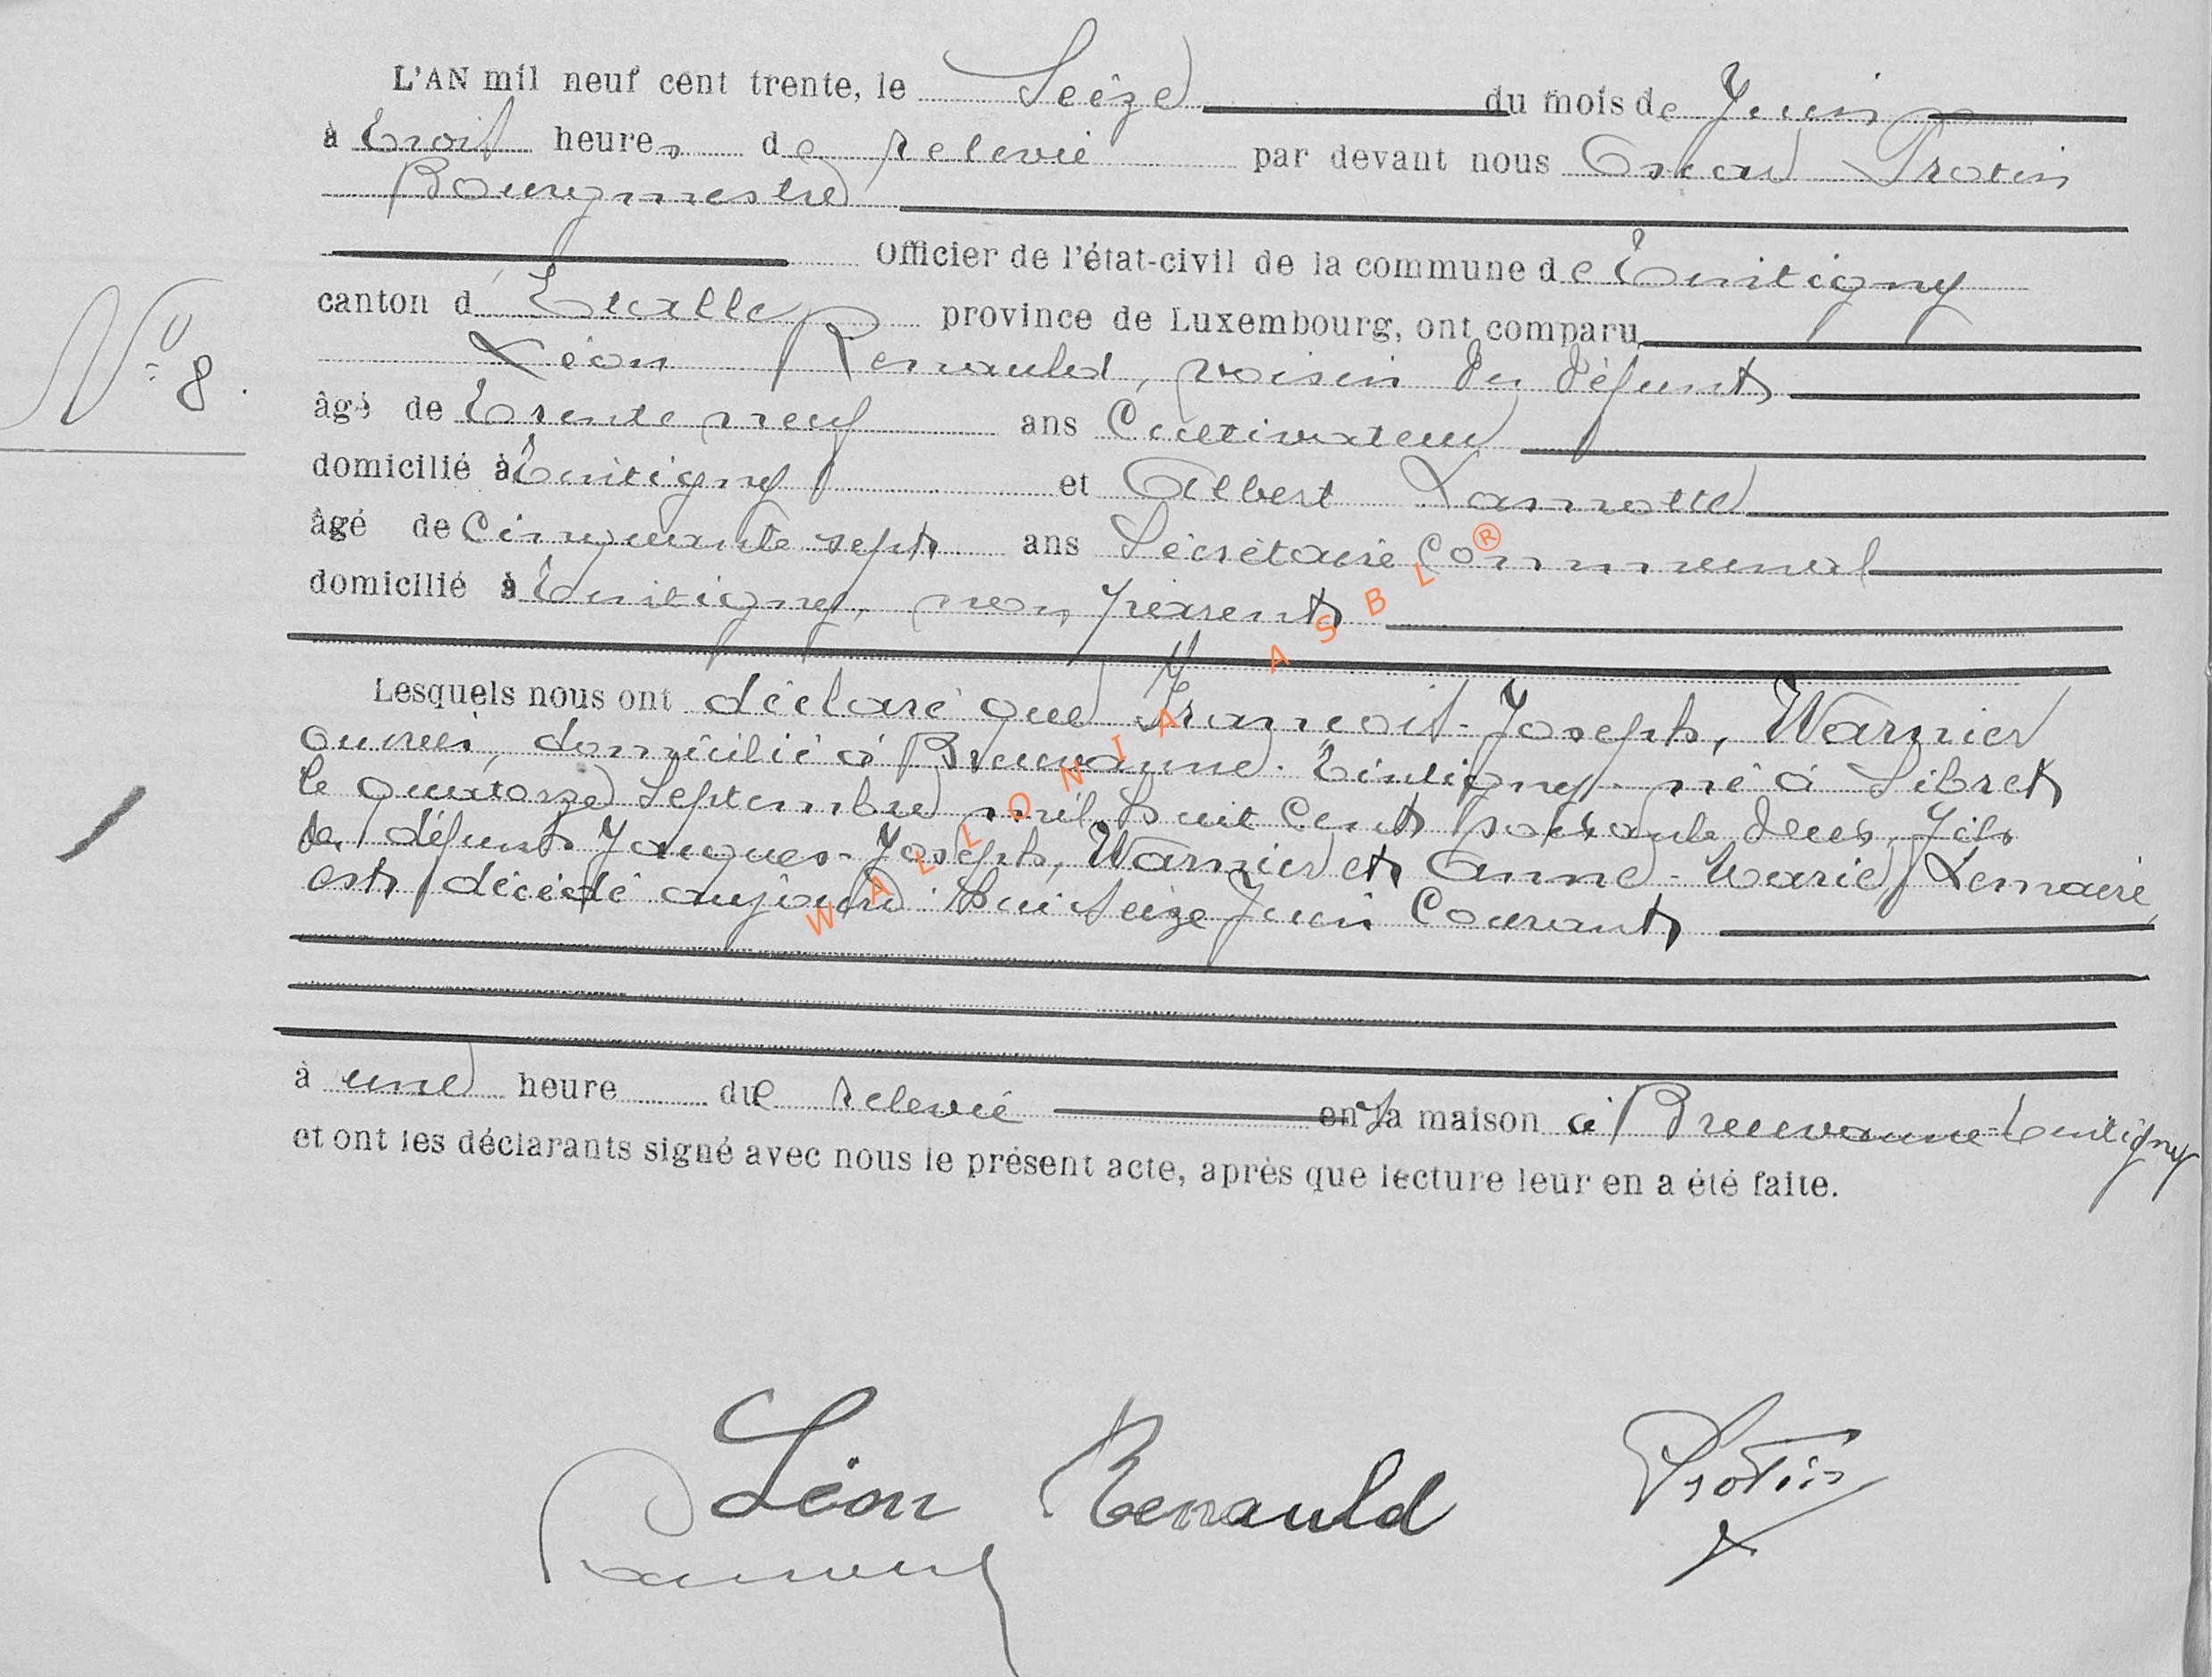 L'AN mil neuf cent trente, le Seize du mois de Juin
à trois heures de relevée par devant nous Oscar Protin
Bourgmestre
Officier de l'état-civil de la commune de Tintigny
canton d'Etalle province de Luxembourg, ont comparu
N° 8.
Léon Renauld, voisin du défunt
âgé de trente neuf ans Cultivateur
domicilié à Tintigny et Albert Lamotte
âgé de Cinquante sept ans Secrétaire Communal
domicilié à Tintigny, non parents
Lesquels nous ont déclaré que François-Joseph, Warnier
ouvrier, domicilié à Breuvanne-Tintigny né à Sibret
le quatorze Septembre mil huit Cent soixante deux, fils
de défunts Jacques-Joseph, Warnier et Anne-Marie, Lemaire,
est décédé aujourd'hui seize Juin Courant
à une heure de relevée en sa maison à Breuvanne-Tintigny
et ont les déclarants signé avec nous le présent acte, après que lecture leur en a été faite.
Léon Renauld Protin
WALLONIA ASBL ®